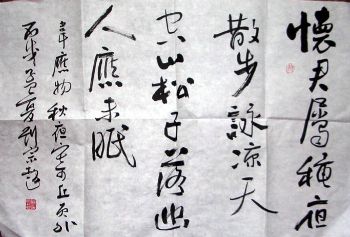 懷君屬秋夜
散步詠涼天
空山松子落幽
人應未眠
韋應物秋夜寄丘員外
丙戌孟夏劉宗